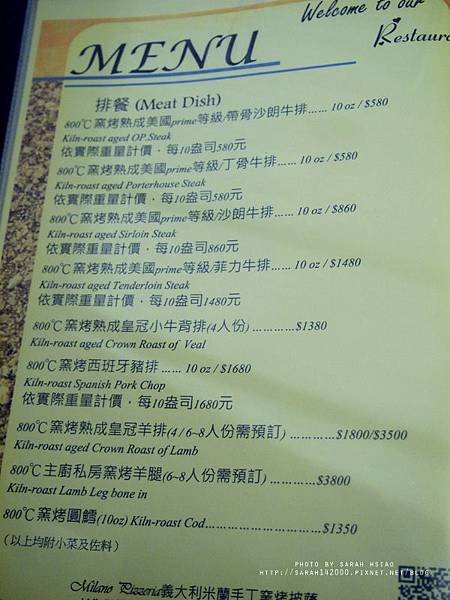 Welcome to our
Restaura
MENU
排餐 (Meat Dish)
800℃窯烤熟成美國prime等級/帶骨沙朗牛排...... 10 oz / $580
Kiln-roast aged OP.Steak
依實際重量計價，每10盎司580元
800℃窯烤熟成美國prime等級/丁骨牛排...... 10 oz / $580
Kiln-roast aged Porterhouse Steak
依實際重量計價，每10盎司580元
800℃窯烤熟成美國prime等級/沙朗牛排...... 10 oz / $860
Kiln-roast aged Sirloin Steak
依實際重量計價，每10盎司860元
800℃窯烤熟成美國prime等級/菲力牛排...... 10 oz / $1480
Kiln-roast aged Tenderloin Steak
依實際重量計價，每10盎司1480元
800℃窯烤熟成皇冠小牛背排(4人份) ............$1380
Kiln-roast aged Crown Roast of Veal
800℃窯烤西班牙豬排...... 10 oz / $1680
Kiln-roast Spanish Pork Chop
依實際重量計價，每10盎司1680元
800℃窯烤熟成皇冠羊排(4 / 6~8人份需預訂) ............$1800/$3500
Kiln-roast aged Crown Roast of Lamb
800℃主廚私房窯烤羊腿(6~8人份需預訂) ............$3800
Kiln-roast Lamb Leg bone in
800℃窯烤圓鱈(10oz) Kiln-roast Cod..............................$1350
(以上均附小菜及佐料)
PHOTO BY SARAH HSIAO
HTTP://SARAH142000.PIXNET.NET/BLOG
Milano Pizzeria義大利米蘭手工窯烤披薩